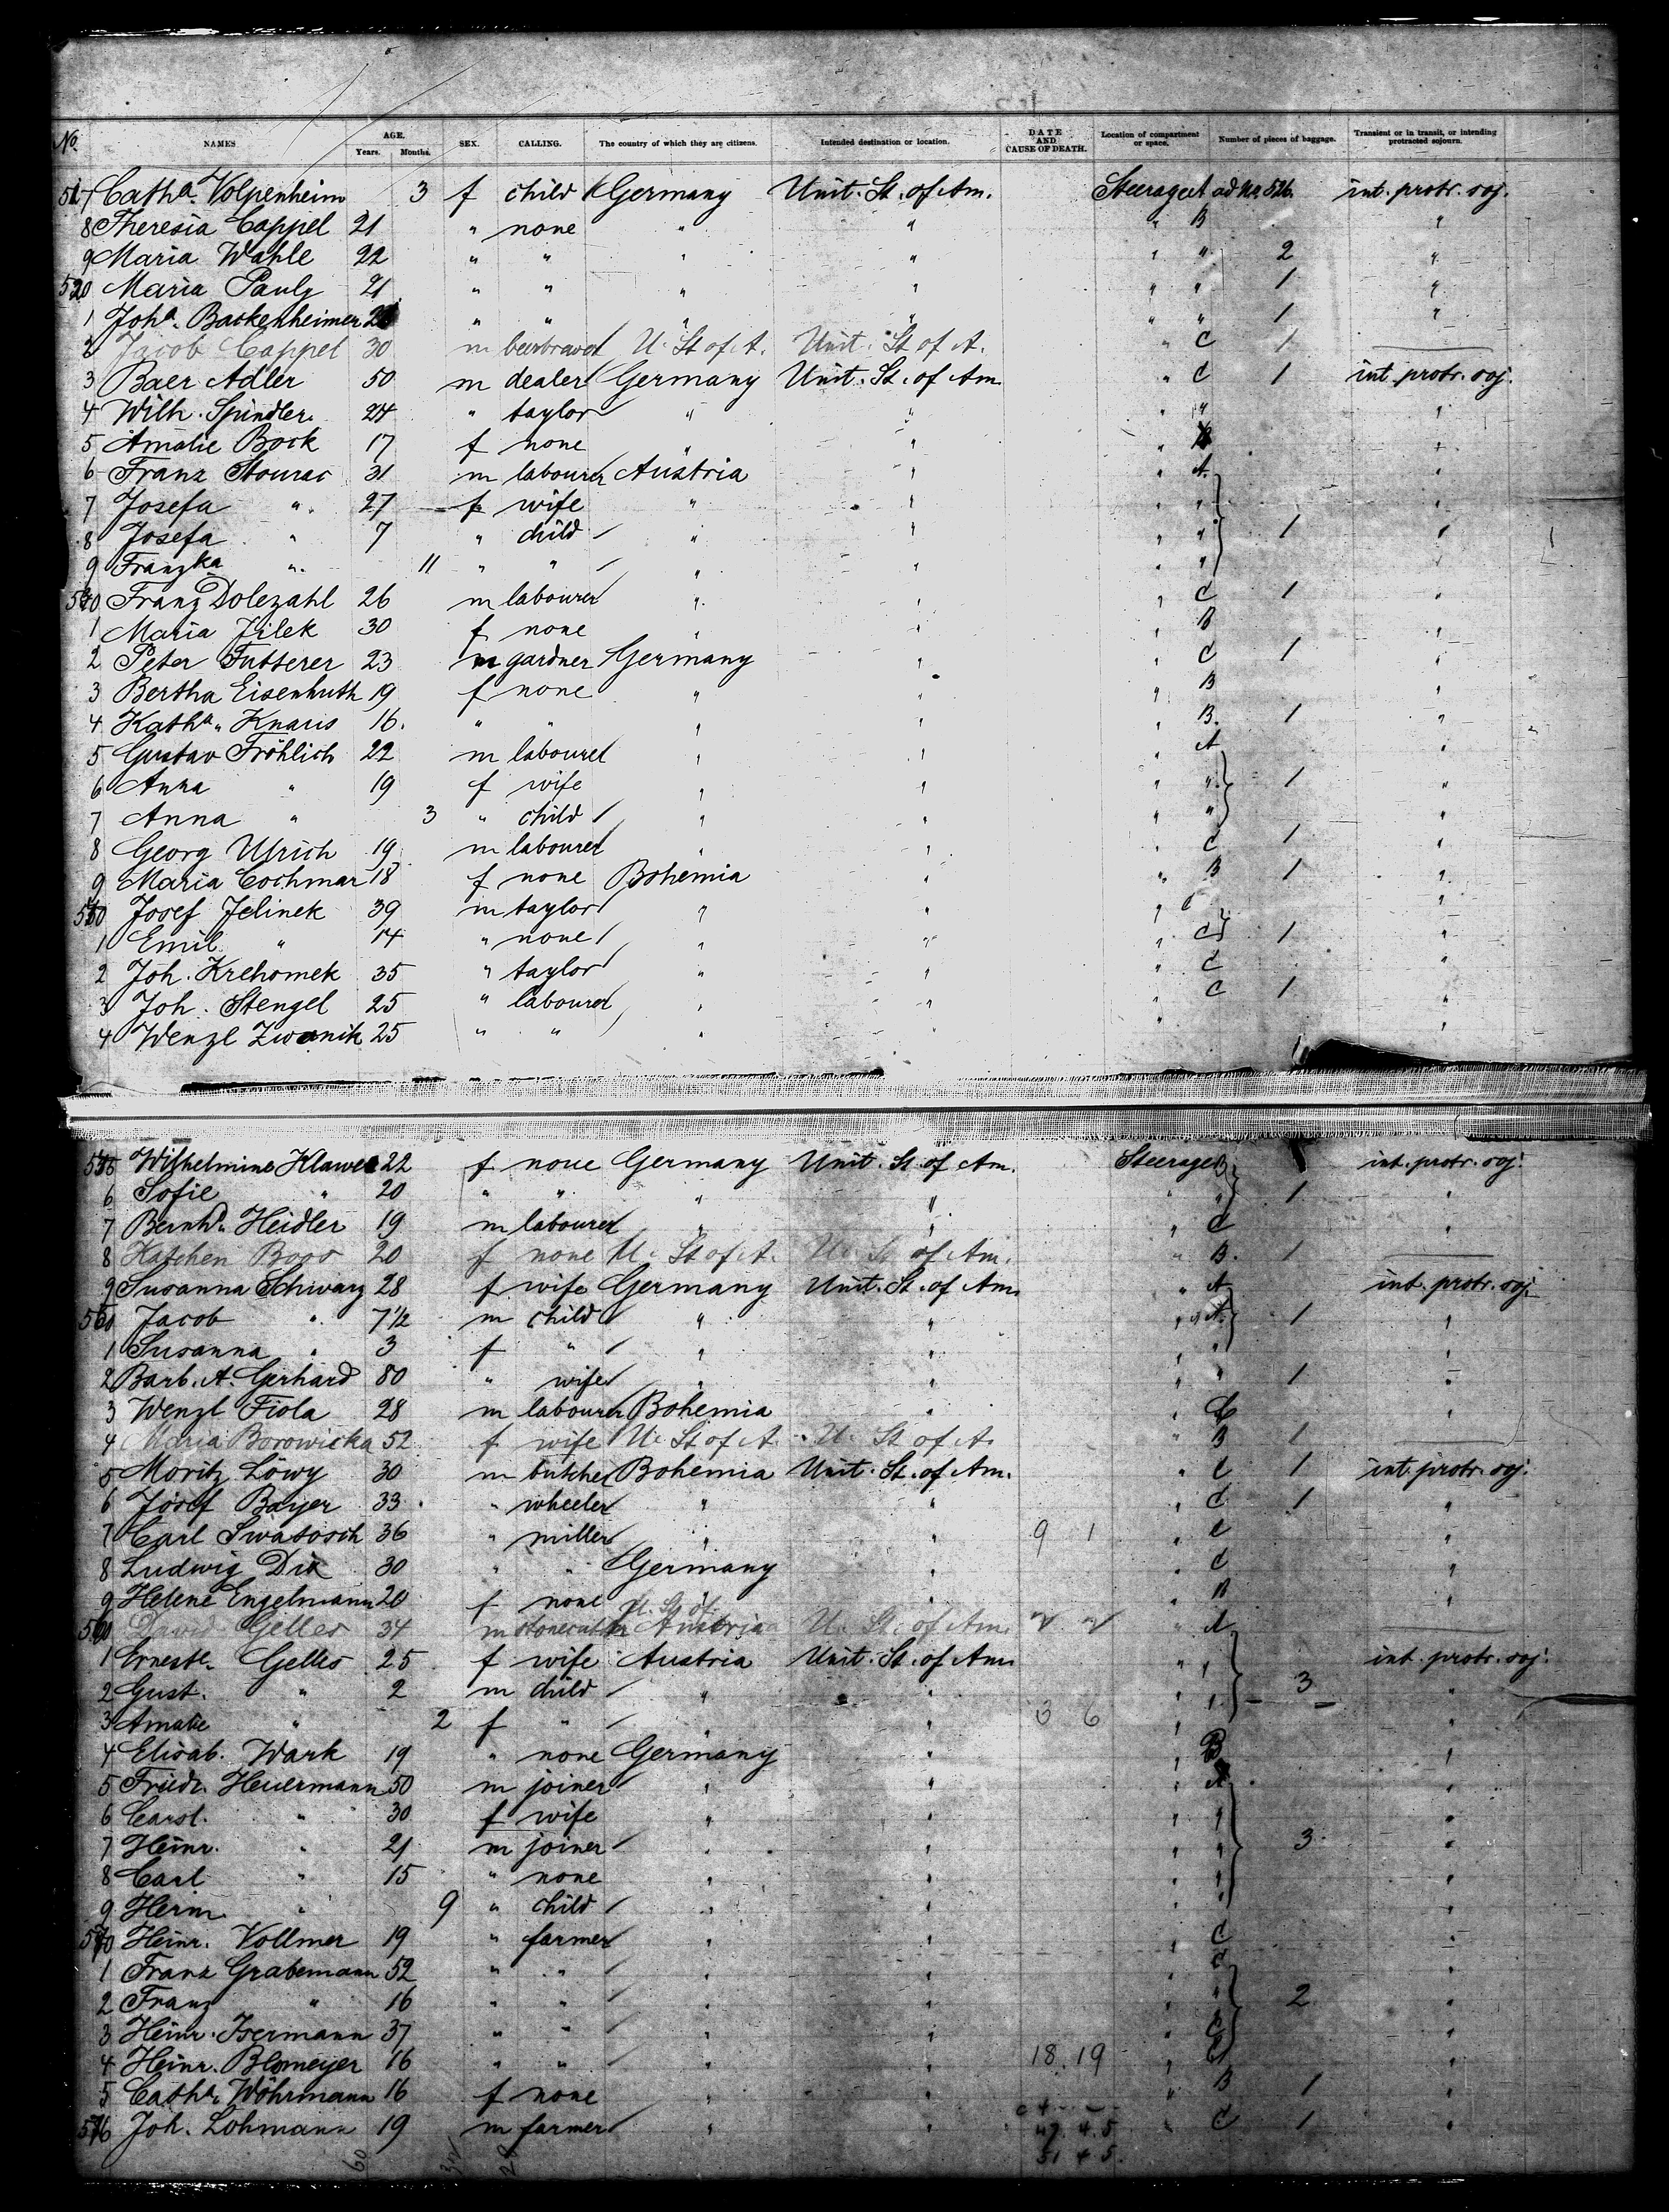 No. NAMES AGE. Years. Months. SEX. CALLING. The country of which they are citizens. Intended destination or location. DATE AND CAUSE OF DEATH. Location of compartment or space. Number of pieces of baggage. Transient or in transit, or intending protracted sojourn.
517 Cathª. Volpenheim 3 f child Germany Unit. St. of Am. Steerage A ad No. 526. int. protr. soj.
8 Theresia Cappel 21 " none " " " B "
9 Maria Wahle 22 " " " " " " 2 "
520 Maria Pauly 21 " " " " " " 1 "
1 Johª. Backenheimer " " " " " " 1 "
2 Jacob Cappel 30 m U. St of A. Unit. St of A. " C 1
3 Baer Adler 50 m dealer Germany Unit. St. of Am. " C 1 int. protr. soj.
4 Wilh. Spindler 24 " taylor " " " " "
5 Amalie Bock 17 f none " " " B "
6 Franz Stourac 31 m labourer Austria " " A. "
7 Josefa " 27 f wife " " " " "
8 Josefa " 7 " child " " " " 1 "
9 Franzka " 11 " " " " " "
Franz Dolezahl 26 m labourer " " " C 1 "
1 Maria Jilek 30 f none " " " B "
2 Peter Futterer 23 m gardner Germany " " C 1 "
3 Bertha Eisenhuth 19 f none " " " B "
4 Kathª. Knaris 16. " " " " " B. 1 "
5 Gustav Fröhlich 22 m labourer " " " A "
6 Anna " 19 f wife " " " " 1 "
7 Anna " 3 " child " " " " "
8 Georg Ulrich 19 m labourer " " " C 1 "
9 Maria Cochmar 18 f none Bohemia " " B 1 "
Josef Jelinek 39 m taylor " " " C "
1 Emil " 14 " none " " " C 1 "
2 Joh. Krehomek 35 " taylor " " " C "
3 Joh. Stengel 25 " labourer " " " C 1 "
4 Wenzl Zwanik 25 " " " " " "
Wilhelmine Klawee 22 f none Germany Unit. St. of Am. Steerage B int. protr. soj.
6 Sofie " 20 " " " " " " 1 "
7 Bernhd. Heidler 19 m labourer " " " C "
8 Katchen Boos 20 f none U. St of A. U. St of Am. " B. 1
9 Susanna Schwarz 28 f wife Germany Unit. St. of Am. " A int. protr. soj.
Jacob " 7½ m child " " " A. 1 "
1 Susanna " 3 f " " " " " "
2 Barb. A. Gerhard 80 " wife " " " " 1 "
3 Wenzl Fiola 28 m labourer Bohemia " " C "
4 Maria Borowicka 52 f wife U. St of A. U. St of A. " B 1
5 Moritz Löwy 30 m butcher Bohemia Unit. St. of Am. " C 1 int. protr. soj.
6 Josef Bayer 33 " wheeler " " " C 1 "
7 Carl Swatosch 36 " miller " " 9 1 " C "
8 Ludwig Dix 30 " " Germany " " C "
9 Helene Engelmann 20 f none " " B "
David Gelles 34 m stonecutter U. St. of Austria U. St. of Am. " A
1 Erneste. Gelles 25 f wife Austria Unit. St. of Am. " " int. protr. soj.
2 Gust. " 2 m child " " " " 3 "
3 Amalie " 2 f " " " 3 6 " "
4 Elisab. Wark 19 " none Germany " " B "
5 Friedr. Heuermann 50 m joiner " " " A "
6 Carol. " 30 f wife " " " " "
7 Heinr. " 21 m joiner " " " " 3 "
8 Carl " 15 " none " " " " "
9 Herm. " 9 " child " " " "
Heinr. Vollmer 19 " farmer " " " C "
1 Franz Grabemann 52 " " " " " C "
2 Franz " 16 " " " " " " 2 "
3 Heinr. Isermann 37 " " " " " C "
4 Heinr. Blomeyer 16 " " " " 18. 19 " C "
5 Cathª. Wöhrmann 16 f none " " " B 1 "
576 Joh. Lohmann 19 m farmer " " 47. 4. 5 " C 1 "
51 4 5.